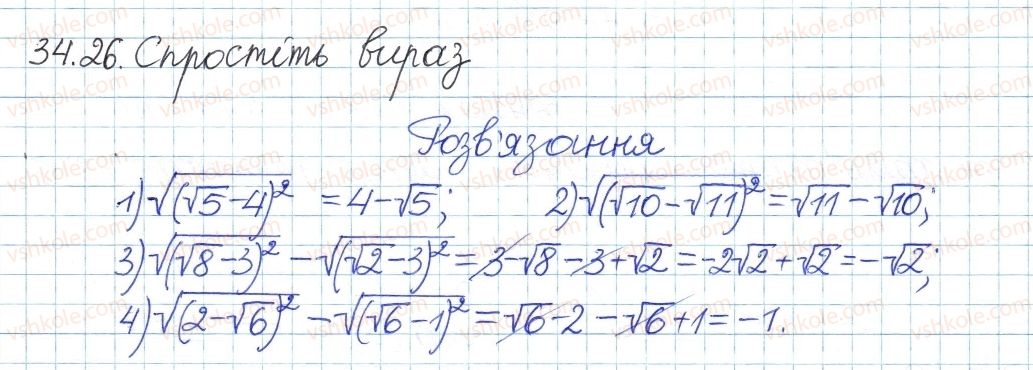 34.26. Спростіть вираз
Розв'язання
1) √(√5-4)² = 4-√5; 2) √(√10-√11)² = √11-√10;
3) √(√8-3)² - √(√2-3)² = 3-√8-3+√2 = -2√2+√2 = -√2;
4) √(2-√6)² - √(√6-1)² = √6-2-√6+1 = -1.